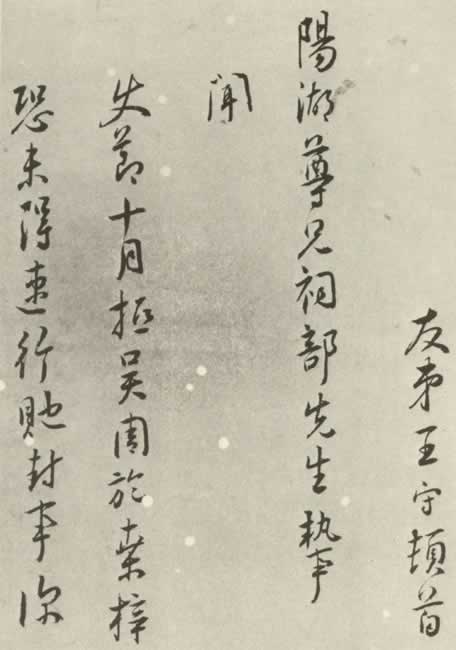 友弟王守頓首
陽湖尊兄祠部先生執事
聞
使節十月抵吳於桑梓
恐未得速行貤封事深